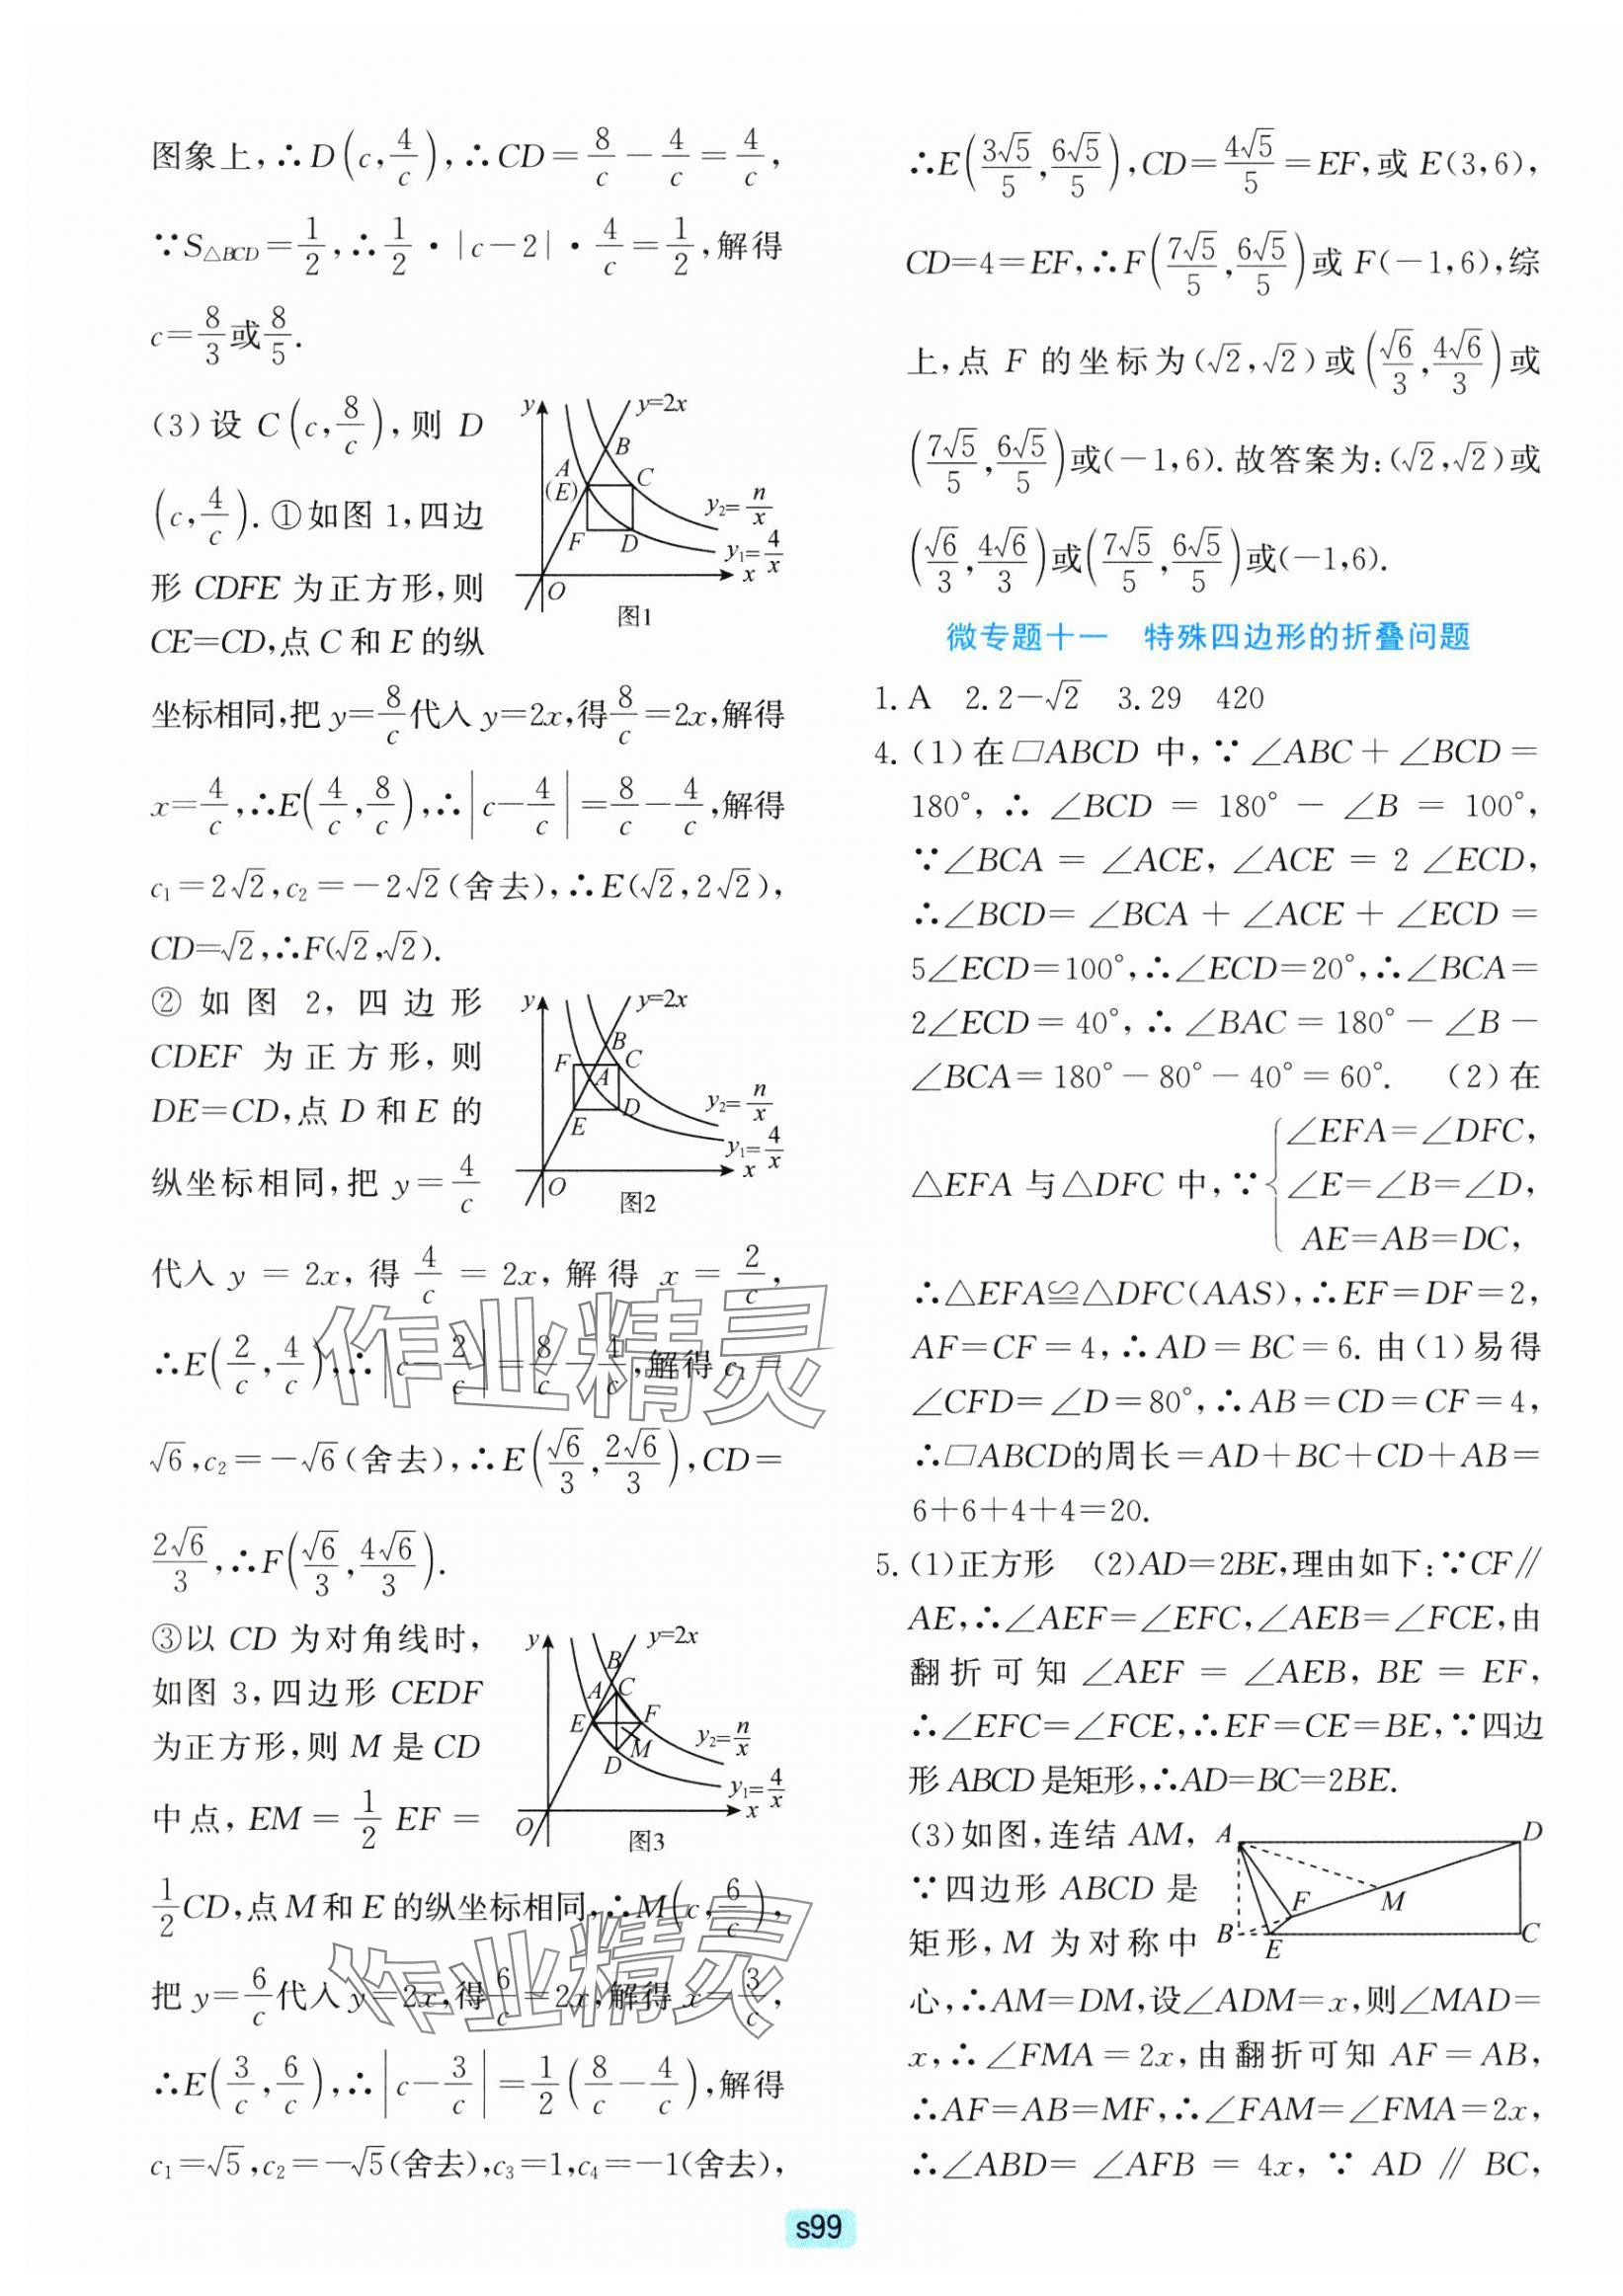 图象上,∴D(c,4/c),∴CD=8/c-4/c=4/c,
∵S△BCD=1/2,∴1/2·|c-2|·4/c=1/2,解得
c=8/3或8/5.
(3)设 C(c,8/c),则 D
(c,4/c).①如图1,四边
形 CDFE 为正方形,则
CE=CD,点 C 和 E 的纵
y
y=2x
B
A
(E)
C
y₂=n/x
F
D
y₁=4/x
x
O
图1
坐标相同,把 y=8/c代入 y=2x,得8/c=2x,解得
x=4/c,∴E(4/c,8/c),∴|c-4/c|=8/c-4/c,解得
c₁=2√2,c₂=-2√2(舍去),∴E(√2,2√2),
CD=√2,∴F(√2,√2).
②如图 2,四边形
CDEF 为正方形,则
DE=CD,点 D 和 E 的
纵坐标相同,把 y=4/c
y
y=2x
B
F
C
A
y₂=n/x
D
E
y₁=4/x
x
O
图2
代入 y=2x,得4/c=2x,解得 x=2/c,
∴E(2/c,4/c),∴|c-2/c|=8/c-4/c,解得 c₁=
√6,c₂=-√6(舍去),∴E(√6/3,2√6/3),CD=
2√6/3,∴F(√6/3,4√6/3).
③以 CD 为对角线时,
如图 3,四边形 CEDF
为正方形,则 M 是 CD
中点,EM=1/2EF=
y
y=2x
B
A
C
E
F
M
y₂=n/x
D
y₁=4/x
x
O
图3
1/2CD,点 M 和 E 的纵坐标相同,∴M(c,6/c),
把 y=6/c代入 y=2x,得6/c=2x,解得 x=3/c,
∴E(3/c,6/c),∴|c-3/c|=1/2(8/c-4/c),解得
c₁=√5,c₂=-√5(舍去),c₃=1,c₄=-1(舍去),
∴E(3√5/5,6√5/5),CD=4√5/5=EF,或 E(3,6),
CD=4=EF,∴F(7√5/5,6√5/5)或 F(-1,6),综
上,点 F 的坐标为(√2,√2)或(√6/3,4√6/3)或
(7√5/5,6√5/5)或(-1,6).故答案为:(√2,√2)或
(√6/3,4√6/3)或(7√5/5,6√5/5)或(-1,6).
微专题十一 特殊四边形的折叠问题
1.A 2.2-√2 3.29 420
4.(1)在▱ABCD 中,∵∠ABC+∠BCD=
180°,∴∠BCD=180°-∠B=100°,
∵∠BCA=∠ACE,∠ACE=2∠ECD,
∴∠BCD=∠BCA+∠ACE+∠ECD=
5∠ECD=100°,∴∠ECD=20°,∴∠BCA=
2∠ECD=40°,∴∠BAC=180°-∠B-
∠BCA=180°-80°-40°=60°. (2)在
△EFA 与△DFC 中,∵{∠EFA=∠DFC,
∠E=∠B=∠D,
AE=AB=DC,
∴△EFA≌△DFC(AAS),∴EF=DF=2,
AF=CF=4,∴AD=BC=6.由(1)易得
∠CFD=∠D=80°,∴AB=CD=CF=4,
∴▱ABCD的周长=AD+BC+CD+AB=
6+6+4+4=20.
5.(1)正方形 (2)AD=2BE,理由如下:∵CF∥
AE,∴∠AEF=∠EFC,∠AEB=∠FCE,由
翻折可知∠AEF=∠AEB,BE=EF,
∴∠EFC=∠FCE,∴EF=CE=BE,∵四边
形 ABCD 是矩形,∴AD=BC=2BE.
(3)如图,连结 AM,
∵四边形 ABCD 是
矩形,M 为对称中
A
D
F
M
B
E
C
心,∴AM=DM,设∠ADM=x,则∠MAD=
x,∴∠FMA=2x,由翻折可知 AF=AB,
∴AF=AB=MF,∴∠FAM=∠FMA=2x,
∴∠ABD=∠AFB=4x,∵AD∥BC,
s99
作业精灵
作业精灵